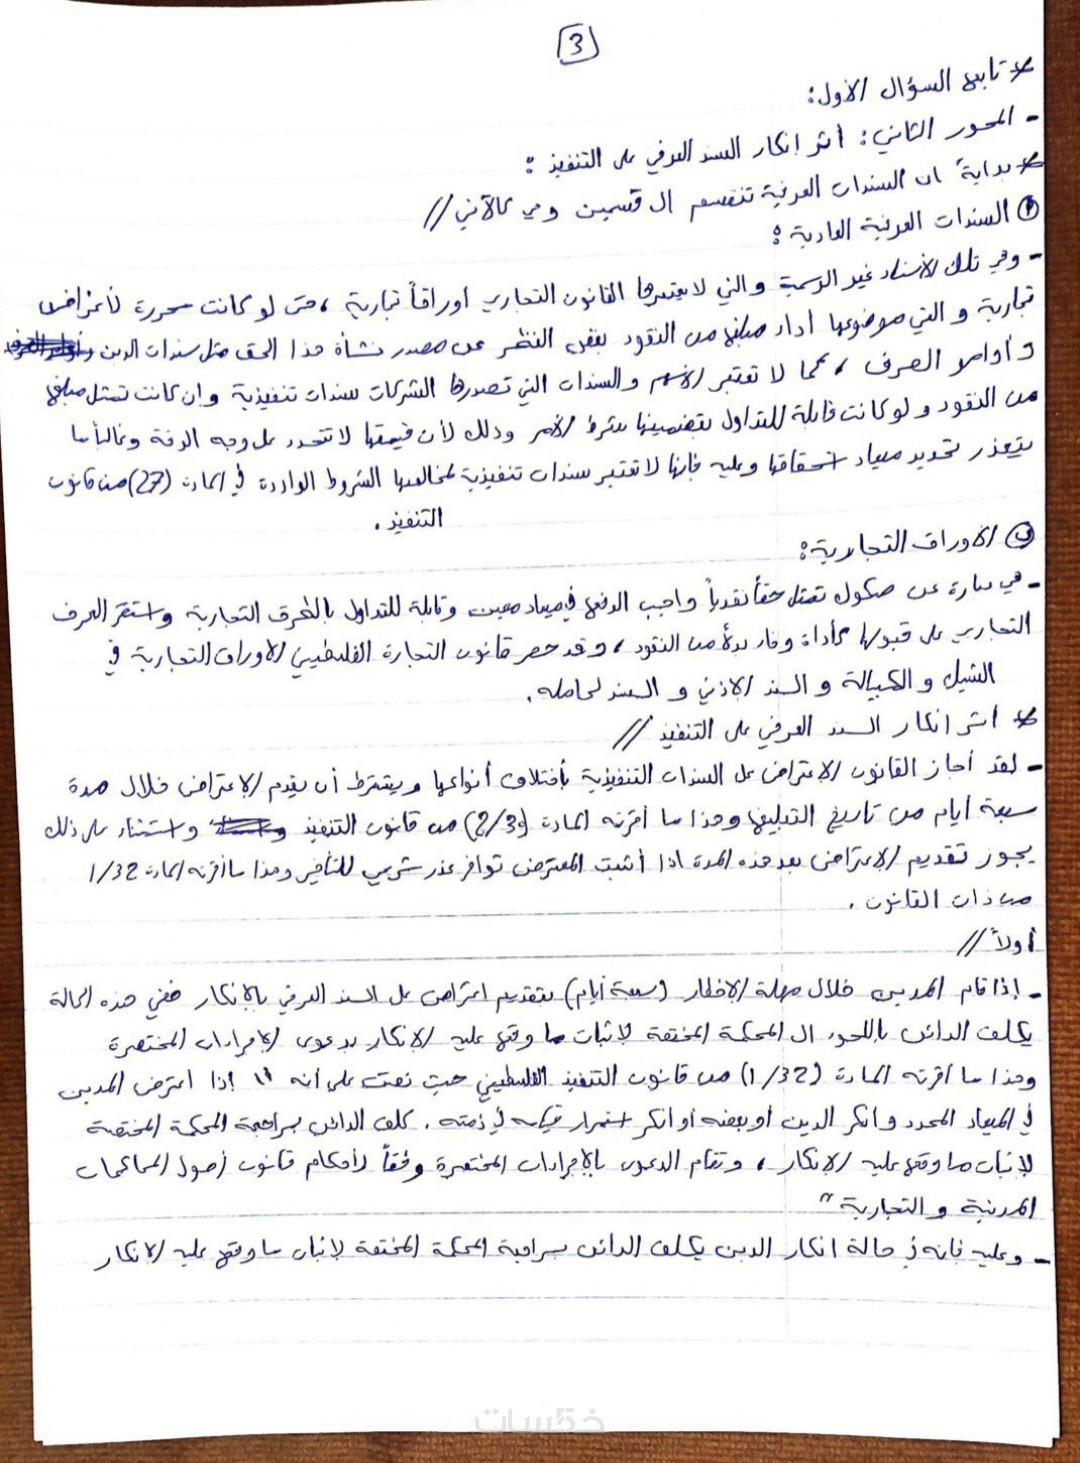 3
* تابع السؤال الأول:
- المحور الثاني: أثر انكار السند العرفي على التنفيذ:
* بداية ان السندات العرفية تنقسم الى قسمين وهي كالآتي //
① السندات العرفية العادية:
- وهي تلك الأسناد غير الرسمية والتي لا يعتبرها القانون التجاري أوراقاً تجارية، حتى لو كانت محررة لأغراض
تجارية والتي موضوعها أداء مبلغ من النقود بغض النظر عن مصدر نشأة هذا الحق مثل سندات الدين
وأوامر الصرف، كما لا تعتبر الأسهم والسندات التي تصدرها الشركات سندات تنفيذية وان كانت تمثل مبلغ
من النقود ولو كانت قابلة للتداول بتضمينها شرط الأمر وذلك لأن قيمتها لا تتحدد على وجه الدقة وغالباً ما
يتعذر تحديد ميعاد استحقاقها وعليه فإنها لا تعتبر سندات تنفيذية لمخالفتها الشروط الواردة في المادة (27) من قانون
التنفيذ.
② الأوراق التجارية:
- هي عبارة عن صكوك تمثل حقاً نقدياً واجب الدفع في ميعاد معين وقابلة للتداول بالطرق التجارية واستقر العرف
التجاري على قبولها كأداة وفاء بدلاً من النقود، وقد حصر قانون التجارة الفلسطيني الأوراق التجارية في
الشيك والكمبيالة والسند الإذني والسند لحامله.
* أثر انكار السند العرفي على التنفيذ //
- لقد أجاز القانون الاعتراض على السندات التنفيذية بأختلاف أنواعها ويشترط أن يقدم الاعتراض خلال مدة
سبعة أيام من تاريخ التبليغ وهذا ما أقرته المادة (2/30) من قانون التنفيذ واستثناء على ذلك
يجوز تقديم الاعتراض بعد هذه المدة اذا أثبت المعترض توافر عذر شرعي للتأخير وهذا ما أقرته المادة 1/32
من ذات القانون.
أولاً //
- إذا قام المدين خلال مهلة الإخطار (سبعة أيام) بتقديم اعتراض على السند العرفي بالإنكار ففي هذه الحالة
يكلف الدائن باللجوء الى المحكمة المختصة لإثبات ما وقع عليه الإنكار بدعوى الإجراءات المختصرة
وهذا ما أقرته المادة (1/32) من قانون التنفيذ الفلسطيني حيث نصت على أنه " إذا اعترض المدين
في الميعاد المحدد وانكر الدين أو بعضه أو انكر استمرار قيامه في ذمته. كلف الدائن بمراجعة المحكمة المختصة
لإثبات ما وقع عليه الإنكار، وتقام الدعوى بالإجراءات المختصرة وفقاً لأحكام قانون أصول المحاكمات
المدنية والتجارية"
- وعليه فإنه في حالة انكار الدين يكلف الدائن بمراجعة المحكمة المختصة لإثبات ما وقع عليه الانكار
خمسات